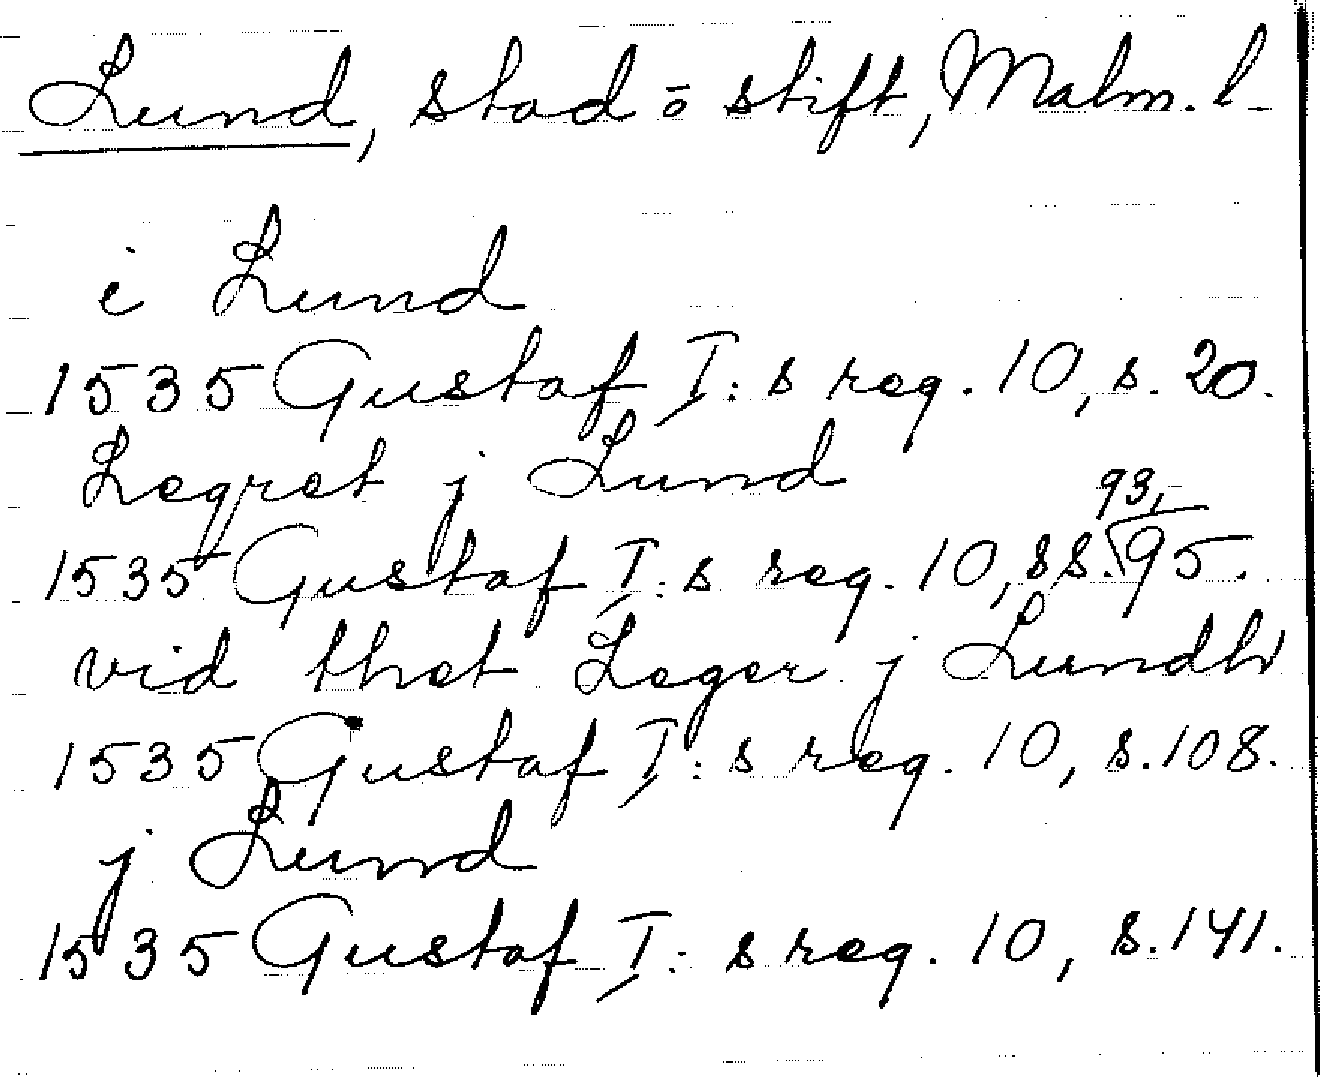 Lund, stad o stift, Malm. l.
i Lund
1535 Gustaf I:s reg. 10, s. 20.
Legret j Lund
1535 Gustaf I:s reg. 10, ss. 93, 95.
vid thet Leger j Lundh
1535 Gustaf I:s reg. 10, s. 108.
j Lund
1535 Gustaf I:s reg. 10, s. 141.